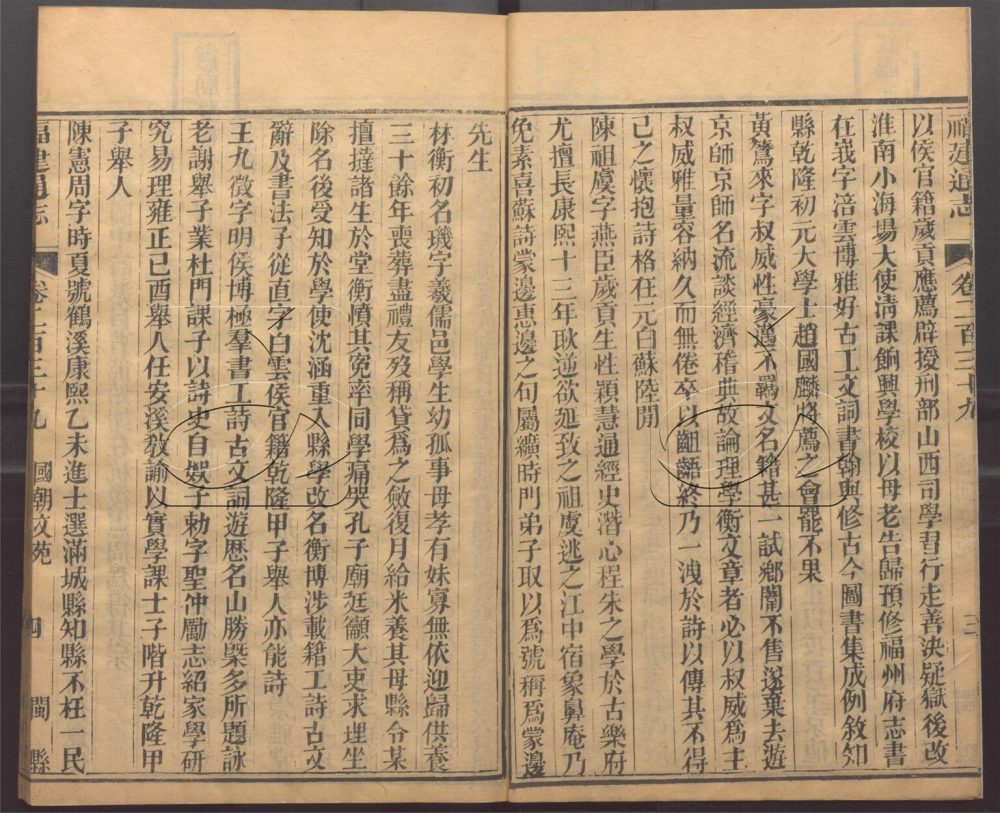 福建通志
卷二百三十九
以侯官籍歲貢應薦辟授刑部山西司學習行走善決疑獄後改
淮南小海場大使清課餉興學校以母老告歸預修福州府志書
在峩字涪雲博雅好古工文詞書翰與修古今圖書集成例敘知
縣乾隆初元大學士趙國麟將薦之會罷不果
黃鷟來字叔威性豪邁不羈文名籍甚一試鄉闈不售遂棄去遊
京師京師名流談經濟稽典故論理學衡文章者必以叔威爲主
叔威雅量容納久而無倦卒以齟齬終乃一洩於詩以傳其不得
己之懷抱詩格在元白蘇陸閒
陳祖虞字燕臣歲貢生性穎慧通經史潛心程朱之學於古樂府
尤擅長康熙十三年耿逆欲延致之祖虞逃之江中宿象鼻庵乃
免素喜蘇詩蒙邊惠邊之句屬纊時門弟子取以爲號稱爲蒙邊
先生
林衡初名璣字羲儒邑學生幼孤事母孝有妹寡無依迎歸供養
三十餘年喪葬盡禮友歿稱貸爲之斂復月給米養其母縣令某
擅撻諸生於堂衡憤其冤率同學痛哭孔子廟廷籲大吏求理坐
除名後受知於學使沈涵重入縣學改名衡博涉載籍工詩古文
辭及書法子從直字白雲侯官籍乾隆甲子舉人亦能詩
王九徵字明侯博極羣書工詩古文詞遊歷名山勝槩多所題詠
老謝舉子業杜門課子以詩史自娛子勅字聖仲勵志紹家學研
究易理雍正己酉舉人任安溪敎諭以實學課士子階升乾隆甲
子舉人
陳憲周字時夏號鶴溪康熙乙未進士選滿城縣知縣不枉一民
福建通志
卷二百三十九
國朝文苑
四
閩縣